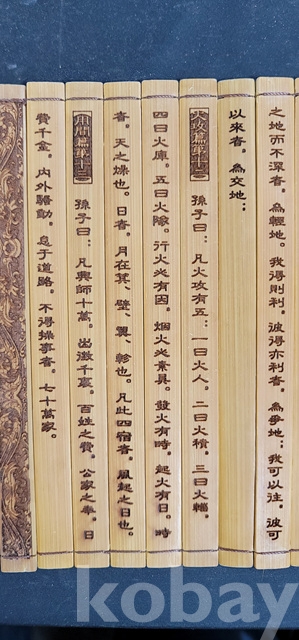 之地而不深者。為輕地。我得則利。彼得亦利者。為爭地：我可以往。彼可
以來者。為交地：
火攻篇第十二
孫子曰：凡火攻有五：一曰火人。二曰火積。三曰火輜。
四曰火庫。五曰火隊。行火必有因。烟火必素具。發火有時。起火有日。時
者。天之燥也。日者。月在箕、壁、翼、軫也。凡此四宿者。風起之日也。
用間篇第十三
孫子曰：凡興師十萬。出徵千裏。百姓之費。公家之奉。日
費千金。內外騷動。怠于道路。不得操事者。七十萬家。
kobay